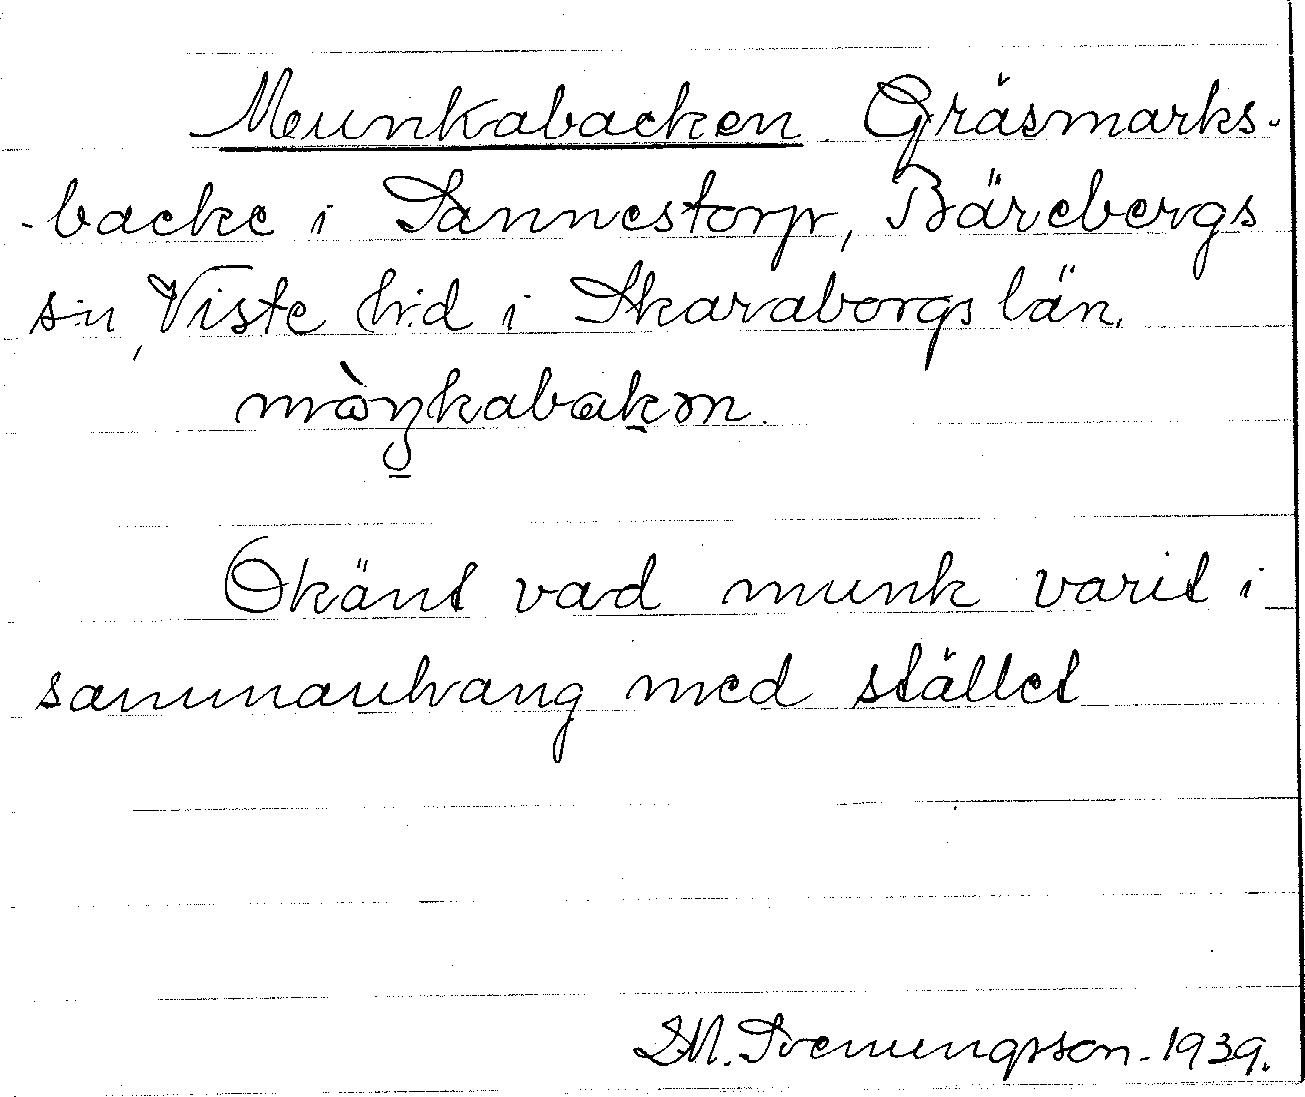 Munkabacken. Gräsmarks-
-backe i Sannestorp, Bärebergs
s:n, Viste h:d i Skaraborgs län.
Okänt vad munk varit i
sammanhang med stället
Svenungsson. 1939.